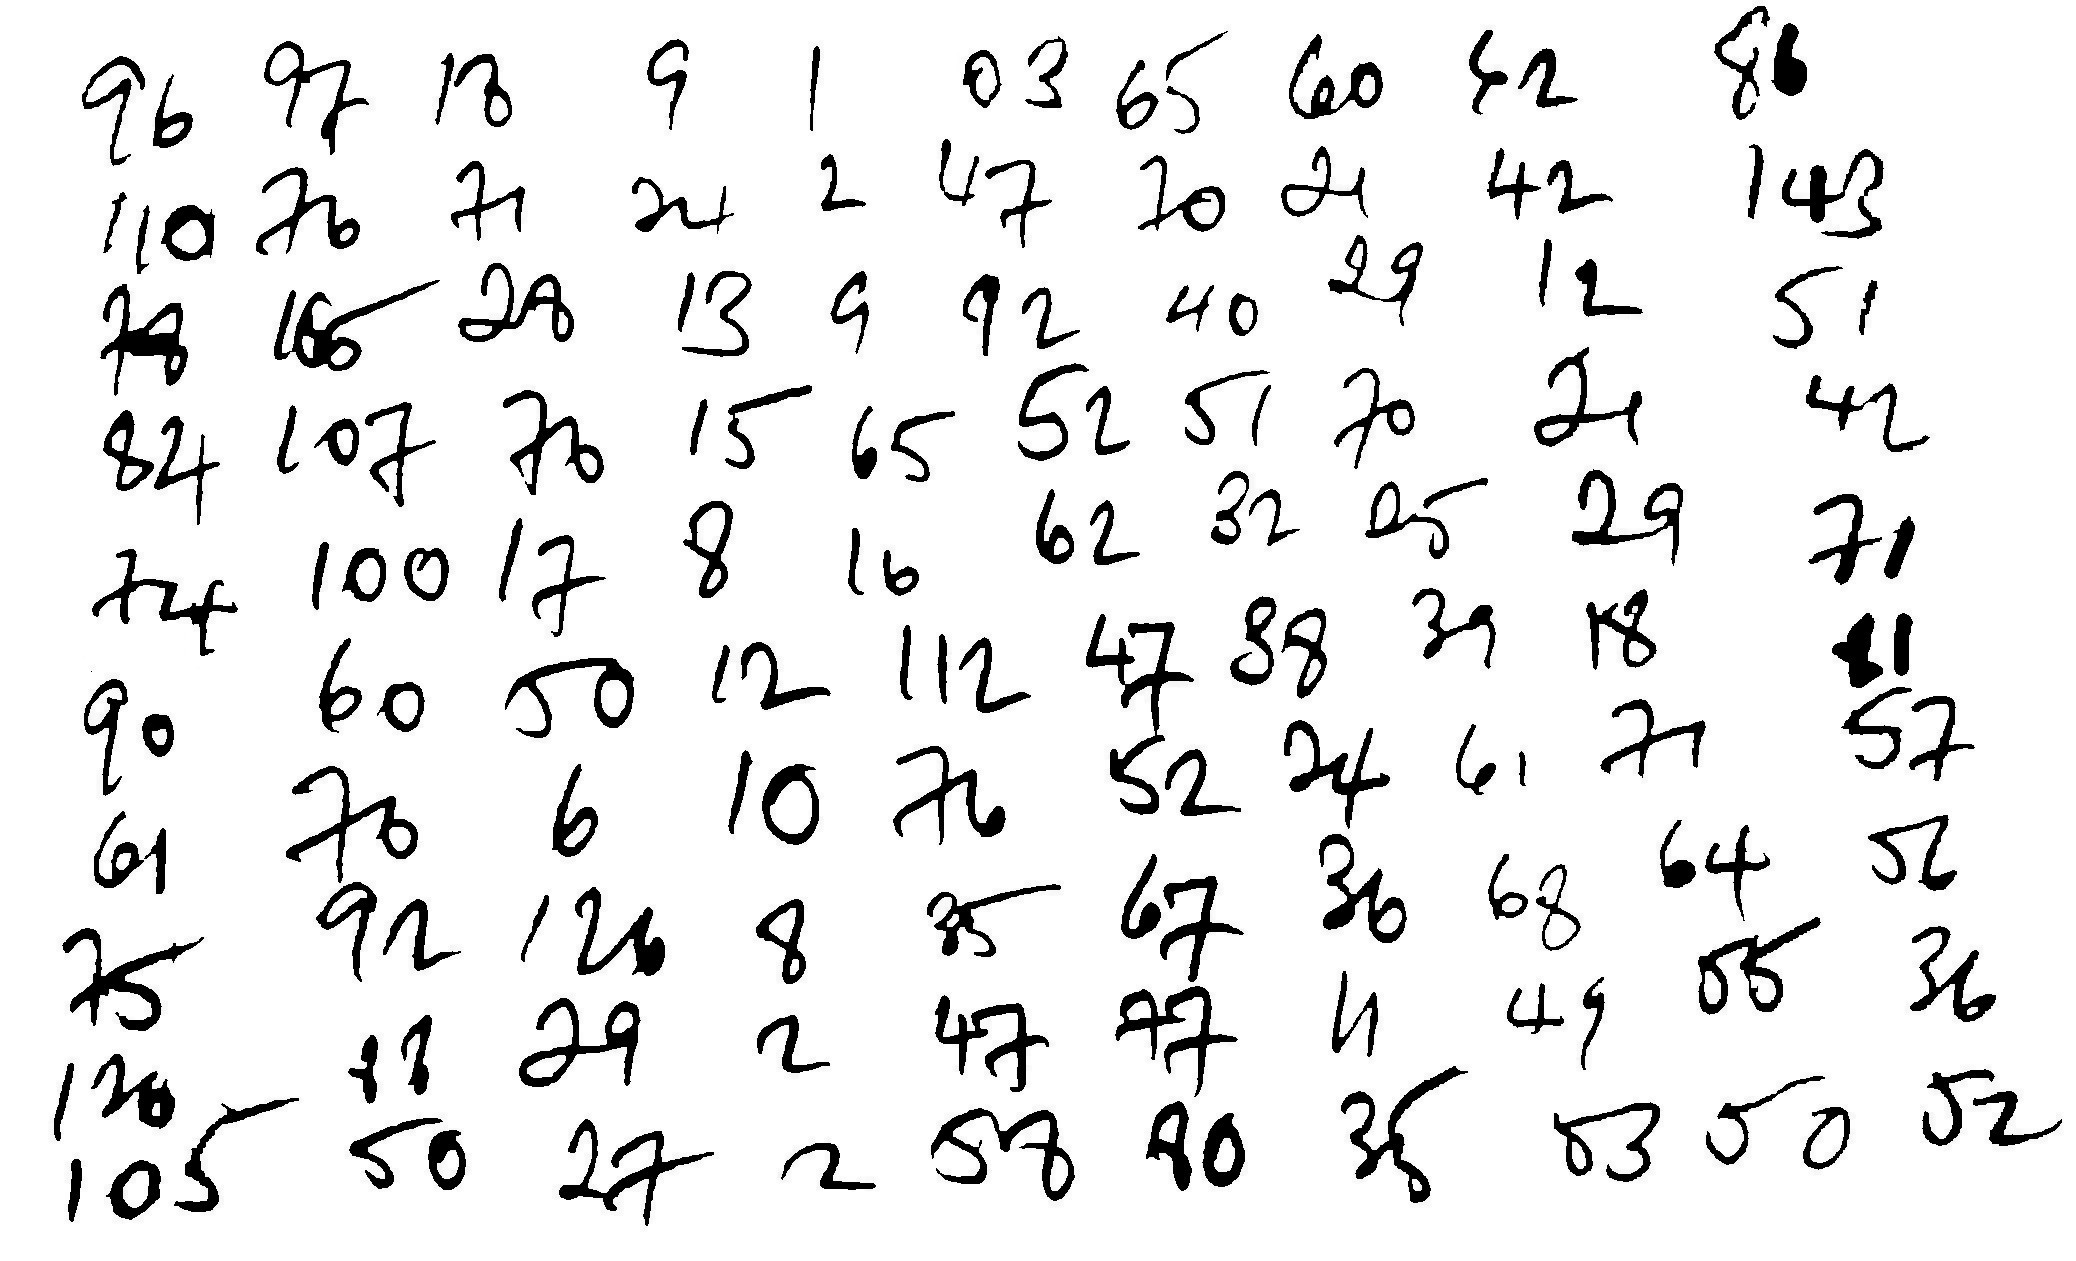 96 97 18 9 1 03 65 60 42 86
110 76 71 24 2 47 70 21 42 143
78 165 28 13 9 92 40 29 12 51
84 107 76 15 65 52 51 70 21 42
74 100 17 8 16 62 32 25 29 71
90 60 50 12 112 47 38 39 18 81
61 76 6 10 76 52 24 61 71 57
75 92 126 8 35 67 36 68 64 56
120 29 2 47 77 11 49 55 36
105 50 27 2 58 80 53 50 52